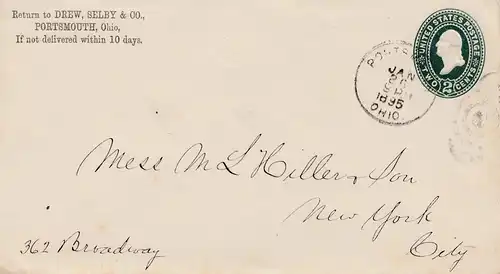 Return to DREW, SELBY & CO.,
PORTSMOUTH, Ohio,
If not delivered within 10 days.
UNITED STATES POSTAGE
TWO 2 CENTS
JAN
1895
OHIO.
Mess M L Hiller & Son
New York
362 Broadway
City